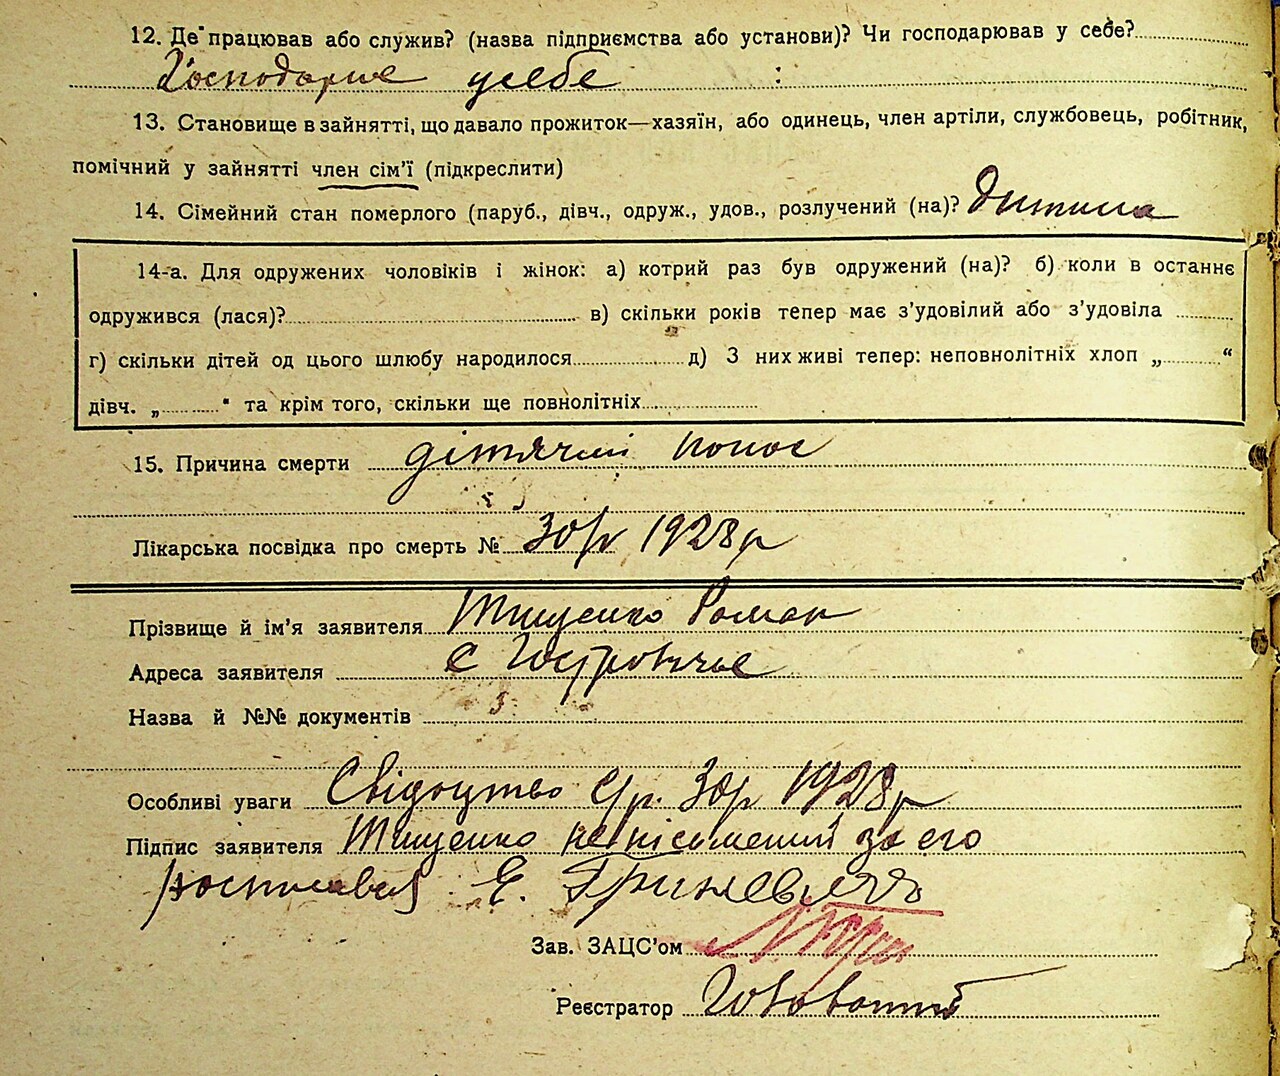 12. Де працював або служив? (назва підприємства або установи)? Чи господарював у себе?
Господарює усебе
13. Становище в зайнятті, що давало прожиток—хазяїн, або одинець, член артіли, службовець, робітник,
помічний у зайнятті член сім'ї (підкреслити)
14. Сімейний стан померлого (паруб., дівч., одруж., удов., розлучений (на)? Дитина
14-а. Для одружених чоловіків і жінок: а) котрий раз був одружений (на)? б) коли в останнє
одружився (лася)? в) скільки років тепер має з'удовілий або з'удовіла
г) скільки дітей од цього шлюбу народилося д) З них живі тепер: неповнолітніх хлоп „ “
дівч. „ “ та крім того, скільки ще повнолітніх
15. Причина смерти дітячий понос
Лікарська посвідка про смерть № 30/IV 1928 р
Прізвище й ім'я заявителя Тищенко Роман
Адреса заявителя с
Назва й №№ документів
Особливі уваги Свідоцтво 1928 р
Підпис заявителя Тищенко неписьмений за его
росписався Є. Гриневич
Зав. ЗАЦС'ом
Реєстратор